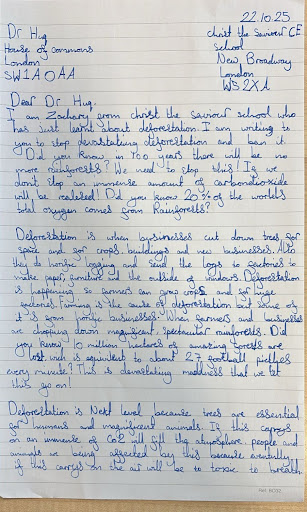 22.10.25
Dr Huq
House of commons
London
SW1A 0AA
christ the saviour CE
school
New Broadway
London
W5 2XA
Dear Dr Huq,
I am Zachary from christ the saviour school who
has just learnt about deforestation. I am writing to
you to stop devastating deforestation and ban it.
Did you know in 100 years there will be no
more rainforests? We need to stop this! If we
don't stop an immense amount of carbondioxide
will be realesed! Did you know 20% of the world's
total oxygen comes from Rainforests?
Deforestation is when businesses cut down trees for
space and for crops, buildings and new businesses. Also
they do horific logging and send the logs to factories to
make paper, furniture and the outside of windows. Deforestation
is happening so farmers can grow crops and for huge
factories. Farming is the cause of deforestation but some of
it is from horific businesses. When farmers and businesses
are chopping down magnificent, spectacular rainforests. Did
you know 10 million hectares of amazing forests are
lost wich is equivalent to about 27 football pitches
every minute? This is devastating maddness that we let
this go on!
Deforestation is Next level because trees are essential
for humans and magnificent animals. If this carrys
on an immense of Co2 will fill the atmosphere. people and
animals we being affected by this because eventually
if this carrys on the air will be to toxic to breath